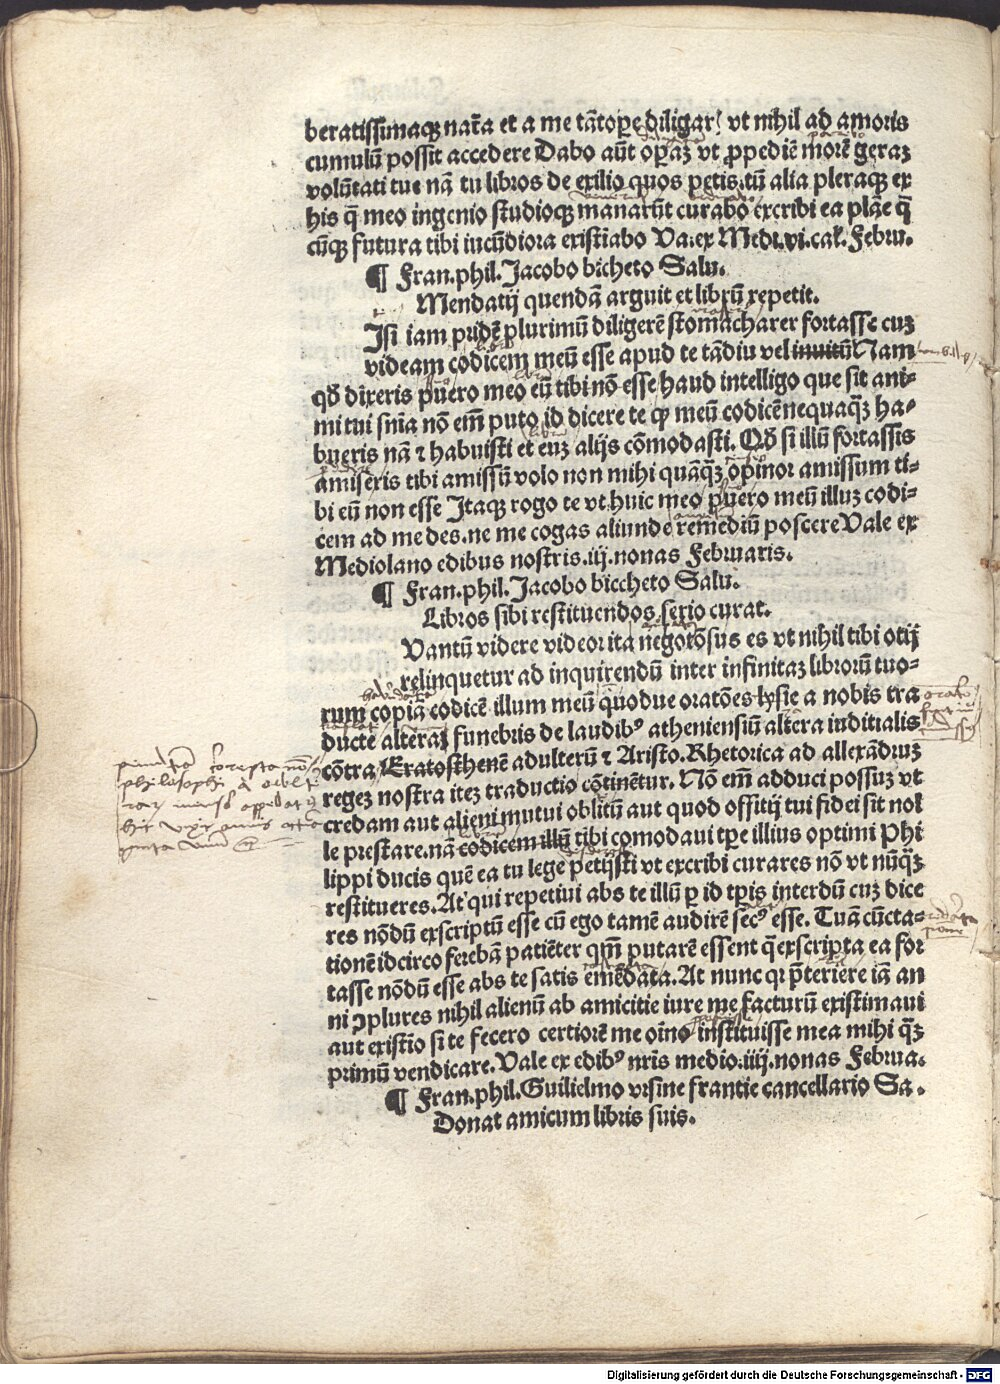 beratissimaqꝫ nat̃a et a me tãtope diligar/ vt nihil ad amoris
cumulũ possit accedere Dabo aũt operaꝫ vt ꝓpediẽ morẽ geraꝫ
volũtati tue nã tu libros de exilio quos petis.tũ alia pleraqꝫ ex
his q̃ meo ingenio studioqꝫ manarũt curabo excribi ea plãe q̃
cũqꝫ futura tibi iucũdiora existiabo Va.ex Medi.vi.cal̃. Febru.
¶ Fran.phil.Jacobo bicheto Salu.
Mendatij quendã arguit et librũ repetit.
Isi iam pridẽ plurimũ diligerẽ stomacharer fortasse cuꝫ
videam codicem meũ esse apud te tãdiu vel inuitũ Nam
qđ dixeris puero meo eũ tibi nõ esse haud intelligo que sit ani-
mi tui snĩa nõ em̃ puto id dicere te ꝙ meũ codicẽ nequaq̃ꝫ ha-
bueris nã ⁊ habuisti et euꝫ alijs cõmodasti. Qđ si illũ fortassis
amiseris tibi amissũ volo non mihi quãq̃ꝫ opinor amissum ti-
bi eũ non esse Itaqꝫ rogo te vt huic meo puero meũ illuꝫ codi-
cem ad me des.ne me cogas aliunde remediũ poscere Vale ex
Mediolano edibus nostris.iij.nonas Februaris.
¶ Fran.phil.Jacobo biccheto Salu.
Libros sibi restituendos serio curat.
Vantũ videre videor ita negotõsus es vt nihil tibi otij
relinquetur ad inquirendũ inter infinitaꝫ librorũ tuo-
rum copiã codicẽ illum meũ quodue oratões lysie a nobis tra
ducte alteraꝫ funebris de laudibꝰ atheniensiũ altera iuditialis
cõtra Eratosthenẽ adulterũ ⁊ Aristo.Rhetorica ad allexãdruꝫ
regeꝫ nostra iteꝫ traductio cõtinẽtur. Nõ em̃ adduci possuꝫ vt
credam aut alieni mutui oblitũ aut quod offitij tui fidei sit nol
le prestare.nã codicem illũ tibi comodaui tpe illius optimi Phi
lippi ducis quẽ ea tu lege petijsti vt excribi curares nõ vt nũq̃ꝫ
restitueres.At qui repetiui abs te illũ ꝑ id tp̃is interdũ cuꝫ dice
res nõdũ exscriptũ esse cũ ego tamẽ audirẽ secꝰ esse. Tuã cũcta-
tionẽ idcirco ferebã patiẽter qm̃ putarẽ essent q̃ exscripta ea for
tasse nõdũ esse abs te satis emẽdata.At nunc qꝛ p̃teriere iã an
ni ↄplures nihil alienũ ab amicitie iure me facturũ existimaui
aut existĩo si te fecero certiorẽ me oĩno instituisse mea mihi q̃ꝫ
primũ vendicare.Vale ex edibꝰ nr̃is medio.iiij.nonas Februa.
¶ Fran.phil.Guilielmo vrsine frantie cancellario Sa.
Donat amicum libris suis.
Digitalisierung gefördert durch die Deutsche Forschungsgemeinschaft - DFG